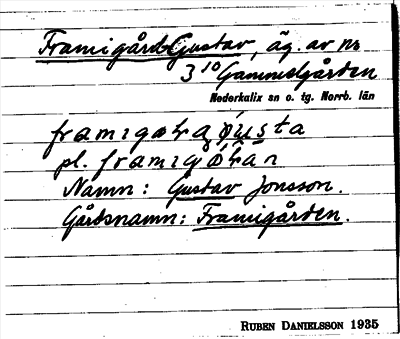 Framigård-Gustav, äg. av nr
3¹⁰ Gammelgården
Nederkalix sn o. tg. Norrb. län
pl.
Namn: Gustav Jonsson.
Gårdsnamn: Framigården.
RUBEN DANIELSSON 1935